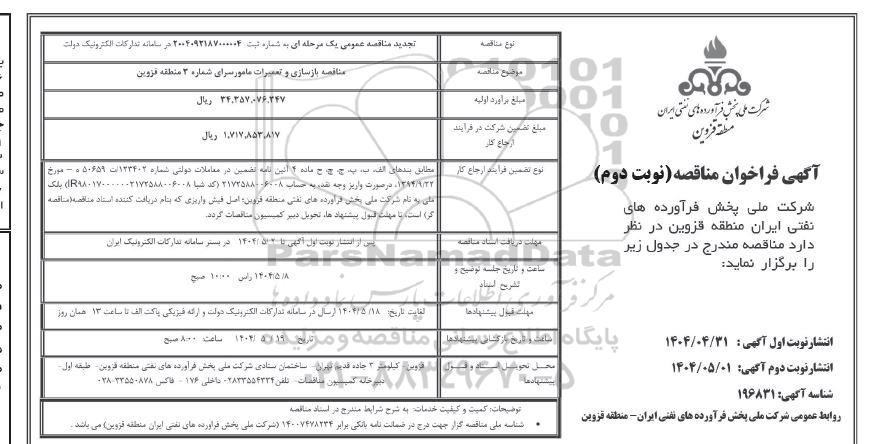 شرکت ملی پخش فرآورده های نفتی ایران
منطقه قزوین
آگهی فراخوان مناقصه(نوبت دوم)
شرکت ملی پخش فرآورده های
نفتی ایران منطقه قزوین در نظر
دارد مناقصه مندرج در جدول زیر
را برگزار نماید:
انتشارنوبت اول آگهی : ۱۴۰۴/۰۴/۳۱
انتشارنوبت دوم آگهی: ۱۴۰۴/۰۵/۰۱
شناسه آگهی: ۱۹۶۸۳۱
روابط عمومی شرکت ملی پخش فرآورده های نفتی ایران– منطقه قزوین
نوع مناقصه
تجدید مناقصه عمومی یک مرحله ای به شماره ثبت ۲۰۰۴۰۹۲۱۸۷۰۰۰۰۰۴ در سامانه تدارکات الکترونیک دولت
موضوع مناقصه
مناقصه بازسازی و تعمیرات مامورسرای شماره ۳ منطقه قزوین
مبلغ برآورد اولیه
۳۴,۳۵۷,۰۷۶,۳۴۷ ریال
مبلغ تضمین شرکت در فرآیند
ارجاع کار
۱,۷۱۷,۸۵۳,۸۱۷ ریال
نوع تضمین فرآیند ارجاع کار
مطابق بندهای الف، ب، پ، ج، چ، ح ماده ۴ آئین نامه تضمین در معاملات دولتی شماره ۱۲۳۴۰۲/ت ۵۰۶۵۹ ه – مورخ
۱۳۹۴/۹/۲۲، درصورت واریز وجه نقد، به حساب ۲۱۷۲۵۸۸۰۰۶۰۰۸ (کد شبا IR۹۸۰۱۷۰۰۰۰۰۰۲۱۷۲۵۸۸۰۰۶۰۰۸) بانک
ملی به نام شرکت ملی پخش فرآورده های نفتی منطقه قزوین؛ اصل فیش واریزی که بنام دریافت کننده اسناد مناقصه(مناقصه
گر) است، تا مهلت قبول پیشنهاد ها، تحویل دبیر کمیسیون مناقصات گردد.
مهلت دریافت اسناد مناقصه
پس از انتشار نوبت اول آگهی تا ۱۴۰۴/۵/۲ در بستر سامانه تدارکات الکترونیک ایران
ساعت و تاریخ جلسه توضیح و
تشریح اسناد
۱۴۰۴/۵/۸ راس ۱۰:۰۰ صبح
مهلت قبول پیشنهادها
لغایت تاریخ: ۱۴۰۴/۵/۱۸ ارسال در سامانه تدارکات الکترونیک دولت و ارائه فیزیکی پاکت الف تا ساعت ۱۳ همان روز
ساعت و تاریخ بازگشایی پیشنهادها
تاریخ: ۱۴۰۴/۵/۱۹ ساعت ۸:۰۰ صبح
محل تحویل اسناد و قبول
پیشنهادها
قزوین- کیلومتر ۳ جاده قدیم تهران- ساختمان ستادی شرکت ملی پخش فرآورده های نفتی منطقه قزوین- طبقه اول-
دبیرخانه کمیسیون مناقصات- تلفن۰۲۸۳۳۵۵۴۳۳۴ داخلی ۱۷۶ - فاکس ۳۳۵۵۰۸۷۸-۰۲۸
توضیحات: کمیت و کیفیت خدمات: به شرح شرایط مندرج در اسناد مناقصه
• شناسه ملی مناقصه گزار جهت درج در ضمانت نامه بانکی برابر ۱۴۰۰۷۴۷۸۲۳۴ (شرکت ملی پخش فراورده های نفتی ایران منطقه قزوین) می باشد .
ParsNamadData
مرکز فرآوری اطلاعات پارس نماد داده ها
پایگاه اطلاع رسانی مناقصه و مزایده
۰۲۱-۸۸۳۴۹۶۷۰-۵